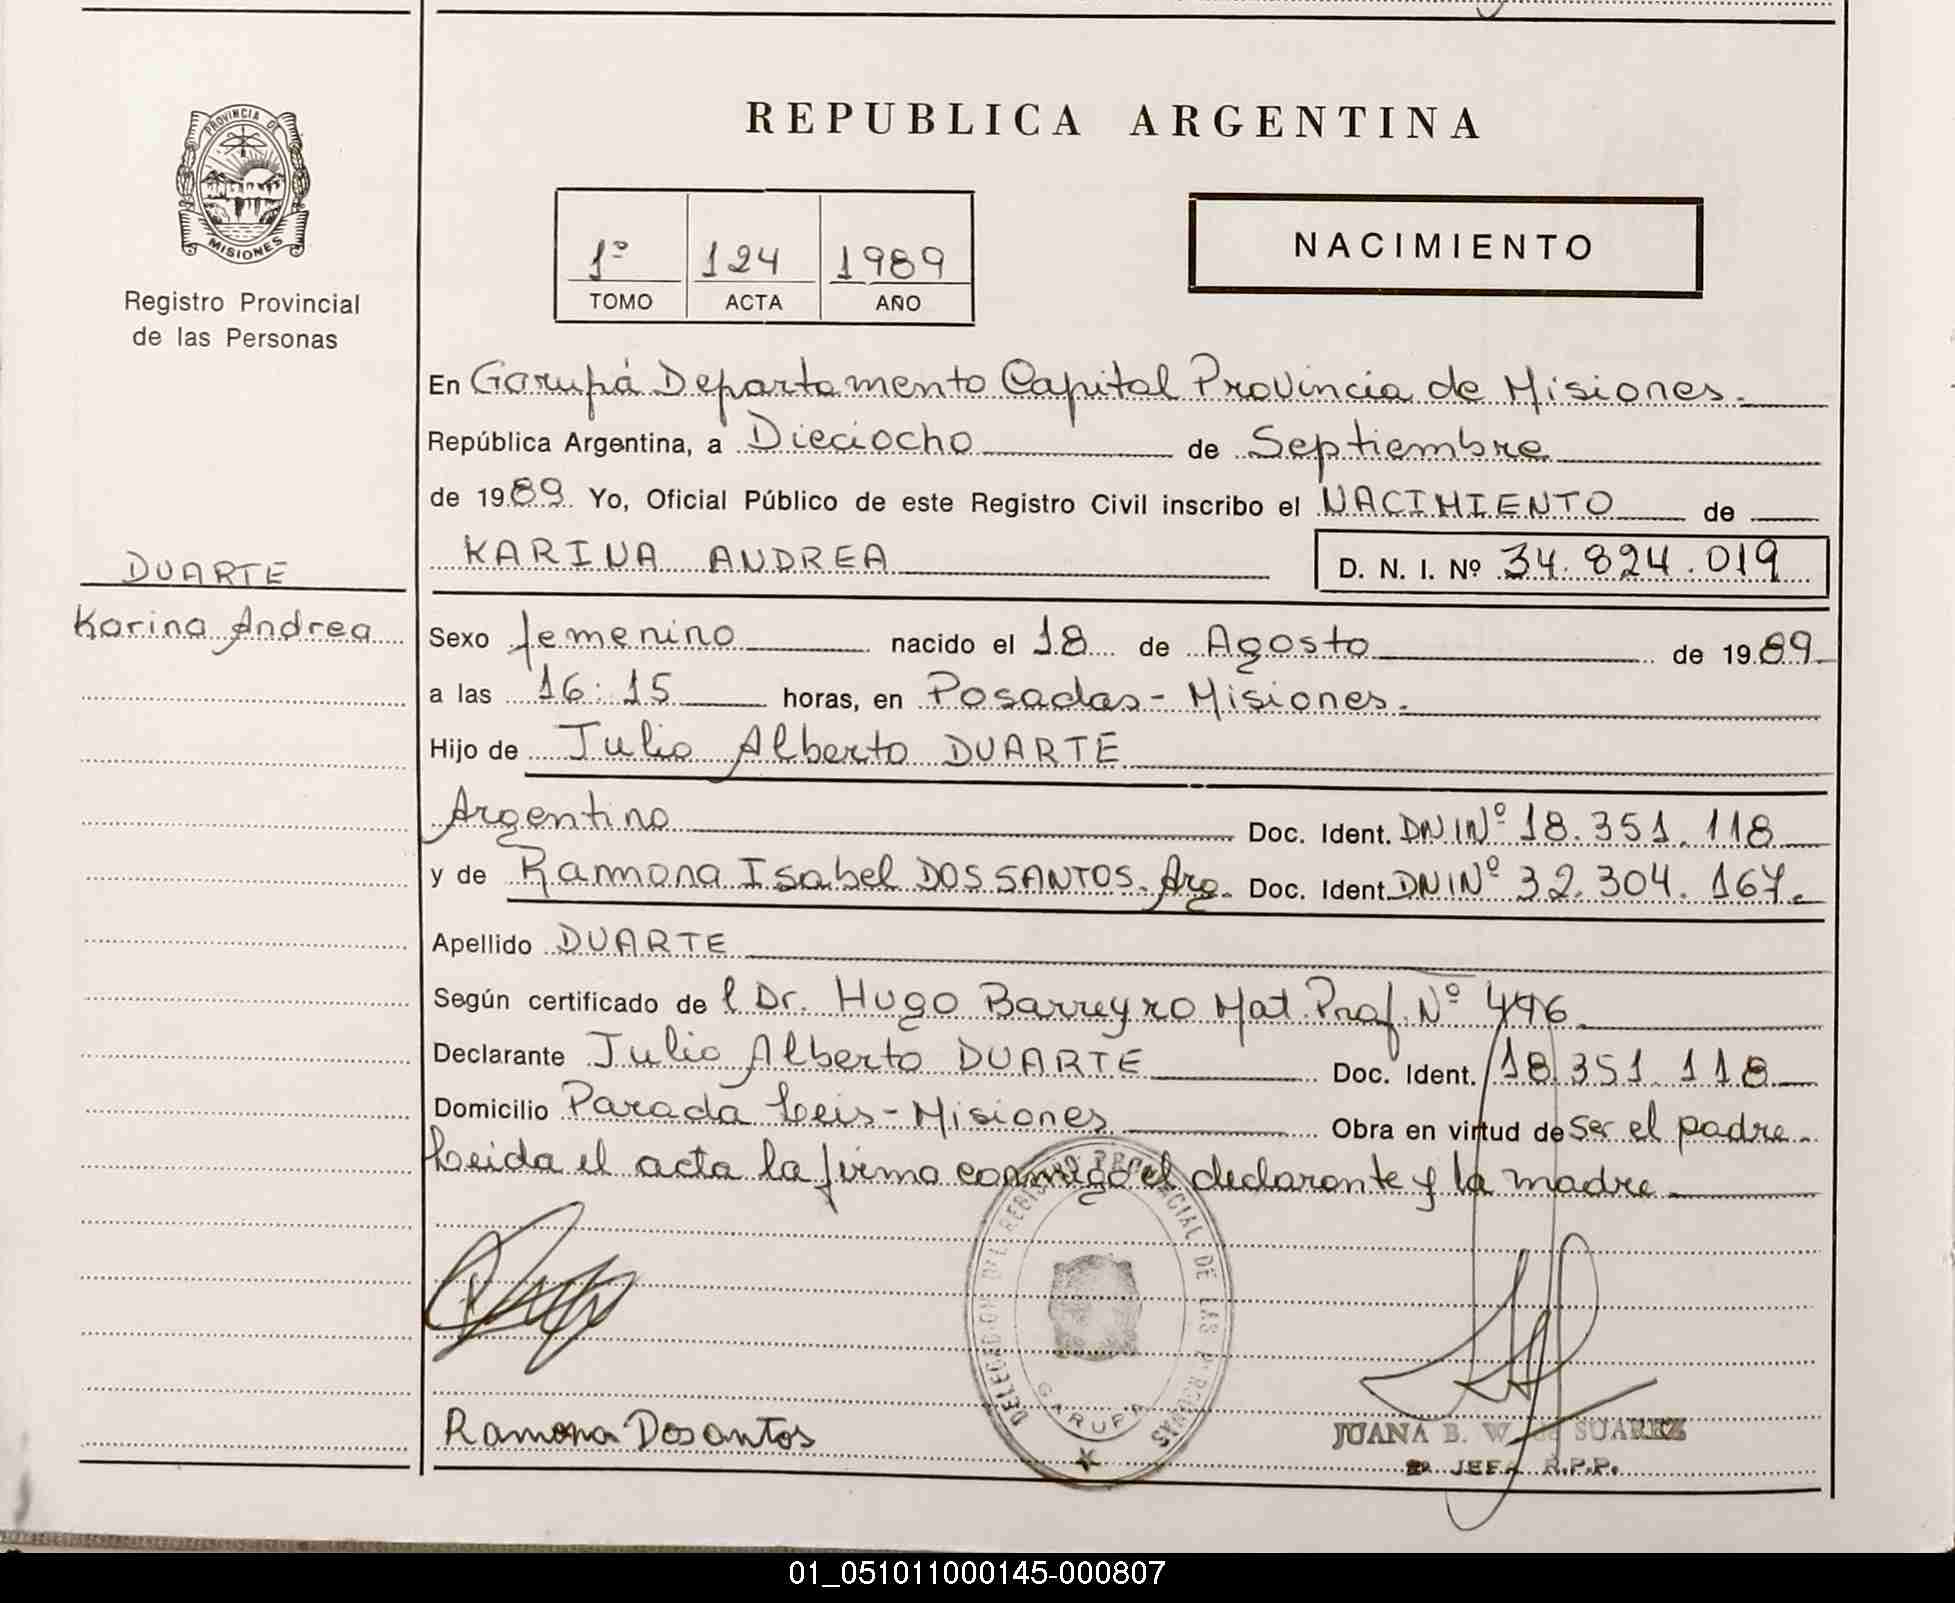 PROVINCIA DE
MISIONES
Registro Provincial
de las Personas
DUARTE
Karina Andrea
REPUBLICA ARGENTINA
1º 124 1989
TOMO ACTA AÑO
NACIMIENTO
En Garupá Departamento Capital Provincia de Misiones.
República Argentina, a Dieciocho de Septiembre
de 1989 Yo, Oficial Público de este Registro Civil inscribo el NACIMIENTO de
KARINA ANDREA D. N. I. Nº 34.824.019
Sexo femenino nacido el 18 de Agosto de 1989
a las 16:15 horas, en Posadas - Misiones.
Hijo de Julio Alberto DUARTE
Argentino Doc. Ident. DNI Nº 18.351.118
y de Ramona Isabel DOS SANTOS. Arg. Doc. Ident. DNI Nº 32.304.167.
Apellido DUARTE
Según certificado de l Dr. Hugo Barreyro Mat. Prof. Nº 496
Declarante Julio Alberto DUARTE Doc. Ident. 18.351.118
Domicilio Parada Leis - Misiones Obra en virtud de ser el padre.
Leida el acta la firma conmigo el declarante y la madre
DELEGACION DEL REGISTRO PROVINCIAL DE LAS PERSONAS
GARUPA
Ramona Dosantos
JUANA B. W. de SUAREZ
JEFA R.P.P.
01_051011000145-000807